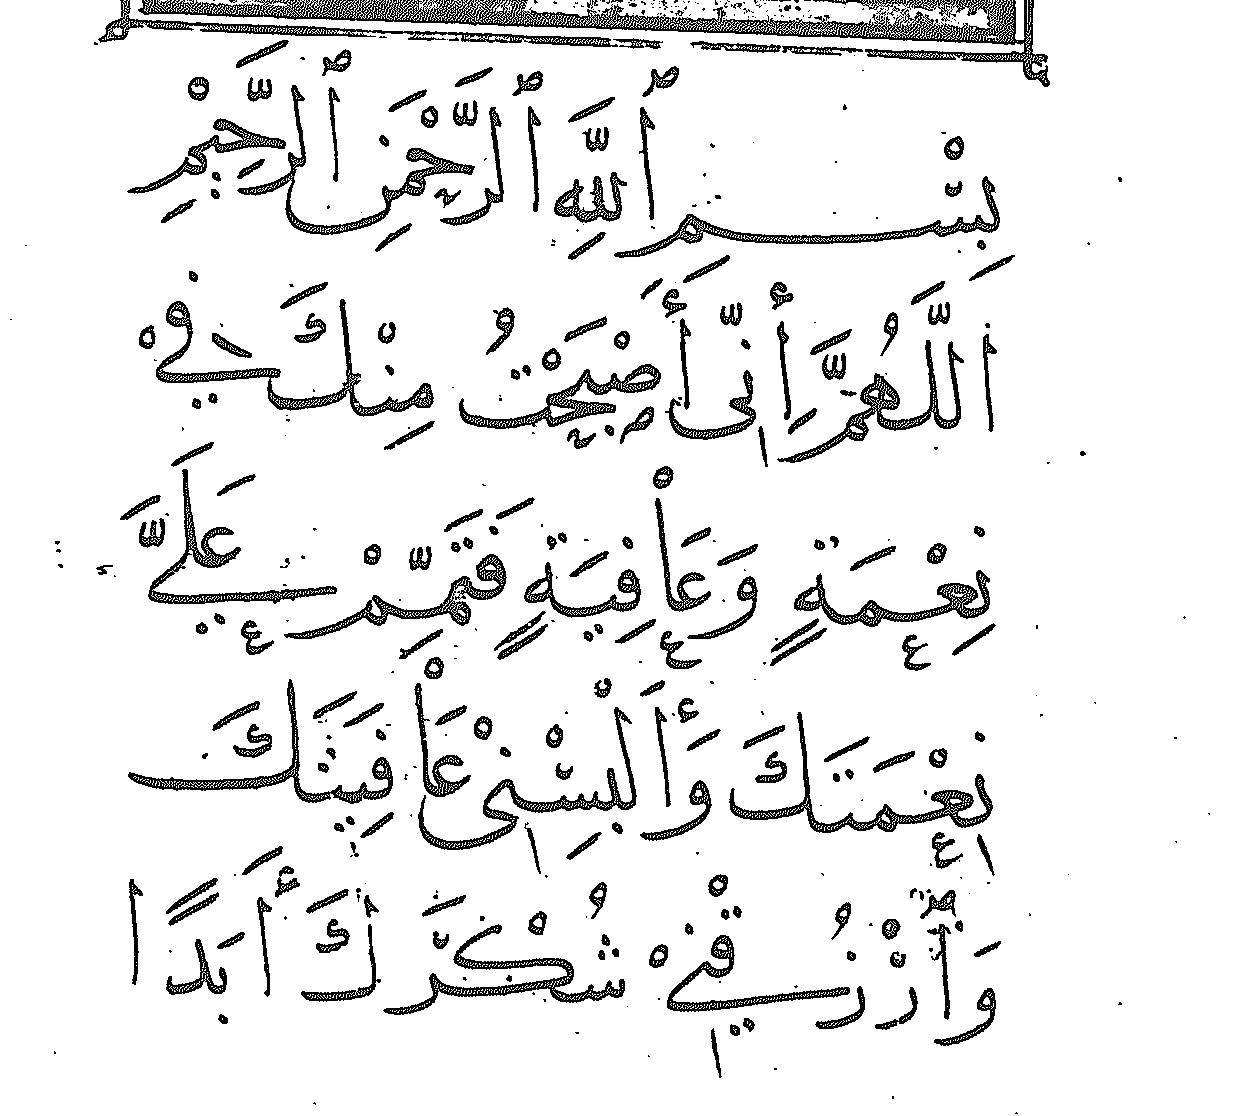 بِسْمِ ٱللَّهِ ٱلرَّحْمَٰنِ ٱلرَّحِيمِ
اللَّهُمَّ إِنِّي أَصْبَحْتُ مِنْكَ فِي
نِعْمَةٍ وَعَافِيَةٍ فَتَمِّمْ عَلَيَّ
نِعْمَتَكَ وَأَلْبِسْنِي عَافِيَتَكَ
وَٱرْزُقْنِي شُكْرَكَ أَبَدًا